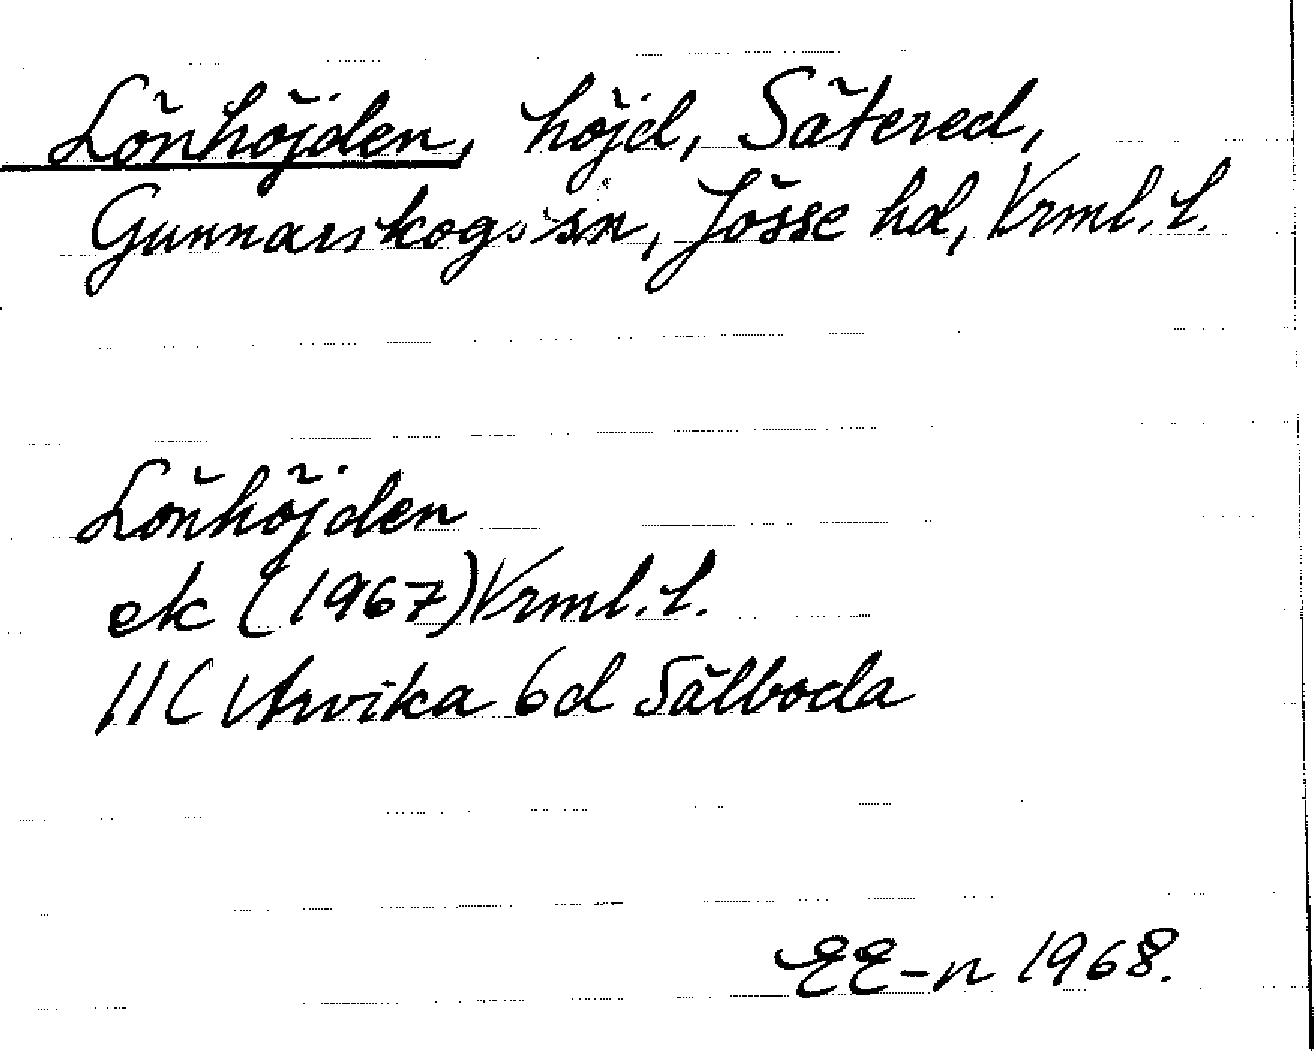 Lönhöjden, höjd, Sätered,
Gunnarskogs sn, Jösse hd, Vrml. l.
Lönhöjden
ek (1967) Vrml. l.
11C Arvika 6d Sälboda
EE-n 1968.